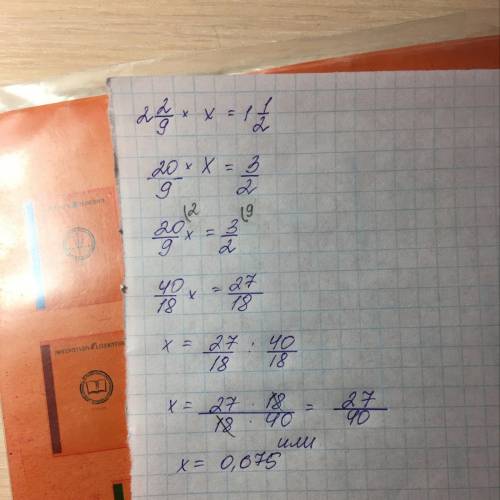 2 2/9 × x = 1 1/2
20/9 × X = 3/2
20/9 \2 x = 3/2 \9
40/18 x = 27/18
x = 27/18 : 40/18
x = 27 · 18 / 18 · 40 = 27/40
или
x = 0,675